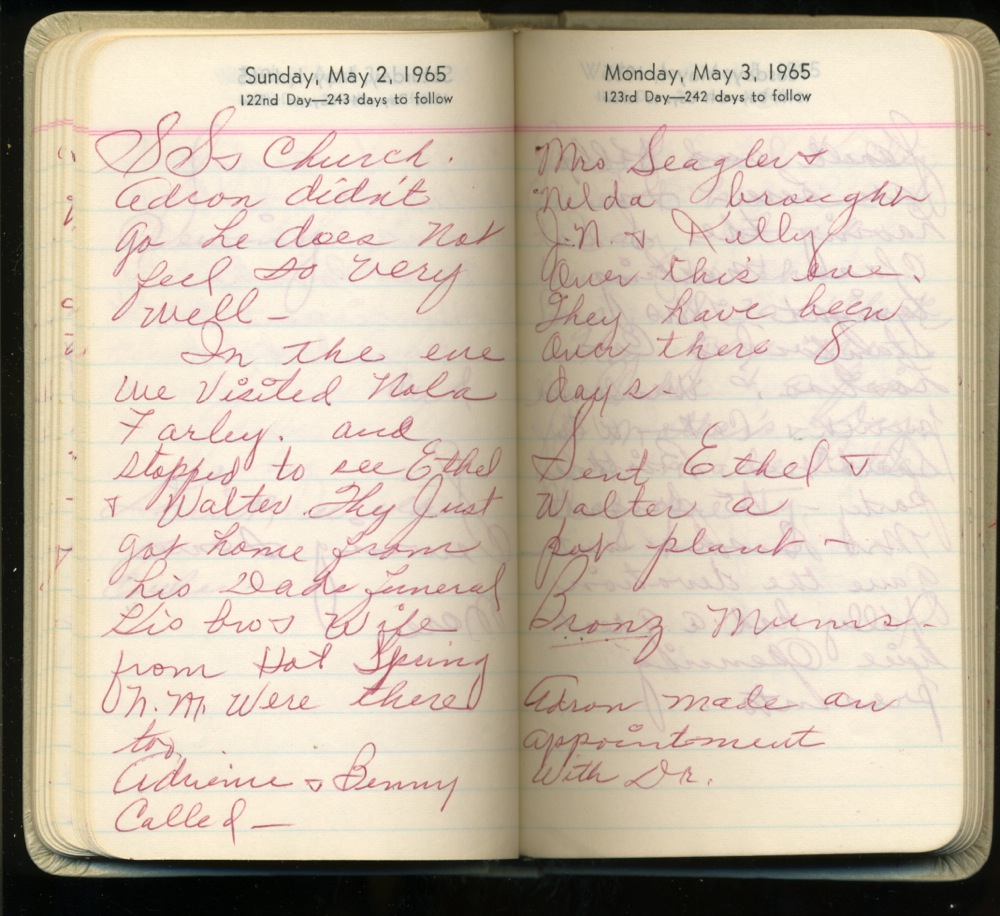 Sunday, May 2, 1965
122nd Day—243 days to follow
S Ss Church.
Adron didn't
go he does not
feel so very
well —
In the eve
we visited Nola
Farley. and
stopped to see Ethel
& Walter. Thy Just
got home from
his Dads funeral
His bros Wife
from Hot Spring
N.M. were there
too
Adrienne & Benny
Called —
Monday, May 3, 1965
123rd Day—242 days to follow
Mrs Seagler &
Nelda brought
J.N. & Kelly
over this eve.
They have been
over there 8
days -
Sent Ethel &
Walter a
pot plant -
Bronz Mums -
Adron made an
appointment
With Dr.